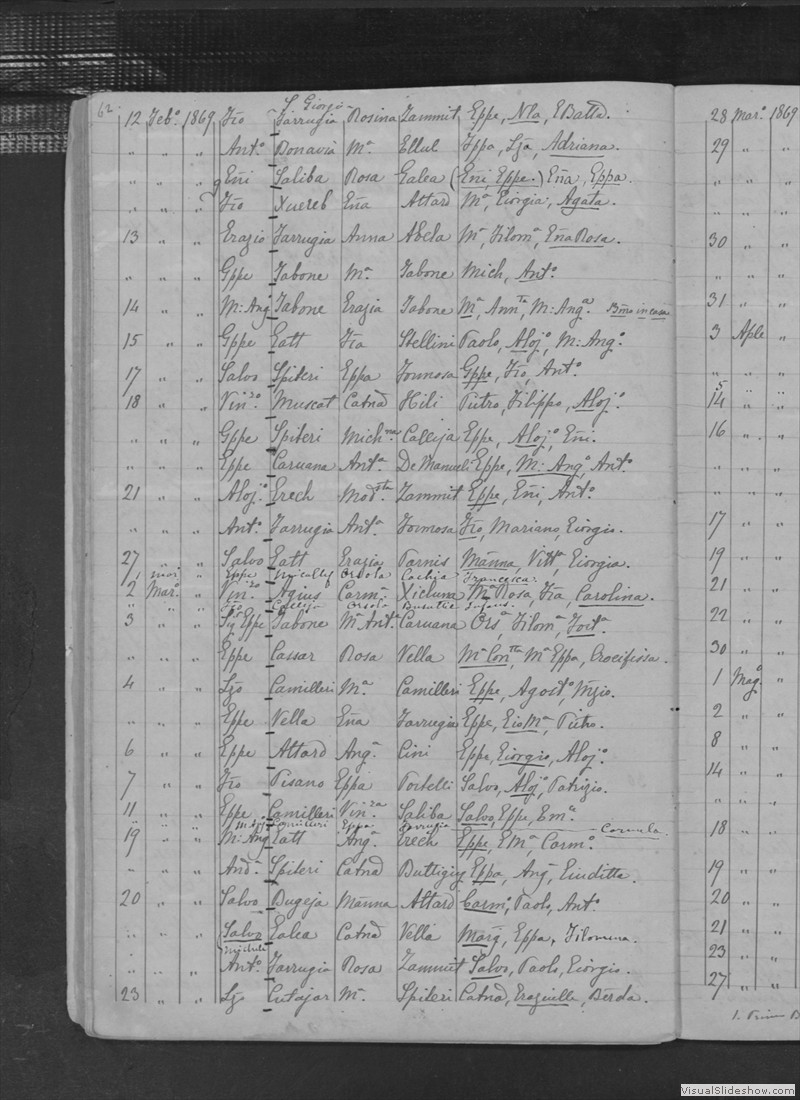 62.
S. Giorgio
12 Febo. 1869 Fco Farrugia Rosina Zammit Eppe, Nla, EBatta.
" " " Anto. Bonavia Ma. Ellul Fppa, Lza, Adriana.
" " " Eñi Saliba Rosa Galea (Eñi, Eppe.) Eña, Eppa.
" " " Fco Xuereb Eña Attard Ma, Giorgia, Agata.
13 " " Grazio Farrugia Anna Abela Ma, Filoma, Eña Rosa.
" " " Gppe Tabone Ma. Tabone Mich, Anto.
14 " " M: Ango Tabone Grazia Tabone Ma, Annta, M: Anga. Bmo in casa
15 " " Gppe Gatt Fca Stellini Paolo, Alojo, M: Ango.
17 " " Salvo Spiteri Eppa Formosa Gppe, Fco, Anto.
18 " " Vinzo. Muscat Catna Hili Pietro, Filippo, Alojo.
" " " Gppe Spiteri Michna Calleja Eppe, Alojo, Eñi.
" " " Eppe Caruana Anta. De Manueli Eppe, M: Ango, Anto.
21 " " Alojo. Grech Modsta Zammit Eppe, Eñi, Anto.
" " " Anto. Farrugia Anta. Formosa Fco, Mariano, Giorgio.
27 " " Salvo Gatt Grazia Farnis Mañna, Vitta, Giorgia.
Eppe Orsola Calleja Francesca.
2 Maro. " Vinzo. Agius Carma. Xicluna Ma Rosa, Fca, Carolina.
Calleja Orsola Busuttil
3 " " Eppe Tabone Ma Anta. Caruana Orsa, Filoma, Forta.
" " " Eppe Cassar Rosa Vella Ma Contta, Ma Eppa, Crocifissa.
4 " " Lzo Camilleri Ma. Camilleri Eppe, Agosto,
" " " Eppe Vella Eña Farrugia Eppe, Pietro.
6 " " Eppe Attard Anga. Cini Eppe, Giorgio, Alojo.
7 " " Fco Pisano Eppa Portelli Salvo, Alojo, Patrizio.
11 " " Eppe Camilleri Vinza Saliba Salvo, Eppe, Ema.
Camilleri Eppa Farrugia Carmela.
19 " " M: Ang Gatt Anga. Grech Eppe, EMa, Carmo.
" " " Anda. Spiteri Catna Buttigieg Eppa, Ang, Giuditta.
20 " " Salvo Bugeja Mañna Attard Carmo, Paolo, Anto.
" " " Salvo Galea Catna Vella Marg, Eppa, Filomena.
Michele
" " " Anto. Farrugia Rosa Zammit Salvo, Paolo, Giorgio.
23 " " Lzo Cutajar Ma. Spiteri Catna, Graziella, Berda.
28 Maro. 1869
29 " "
" " "
30 " "
" " "
31 " "
3 Aple "
" " "
14 " "
16 " "
17 " "
19 " "
21 " "
22 " "
30 " "
1 Mago. "
2 " "
8 " "
14 " "
" " "
18 " "
19 " "
20 " "
21 " "
23 " "
27 " "
VisualSlideshow.com